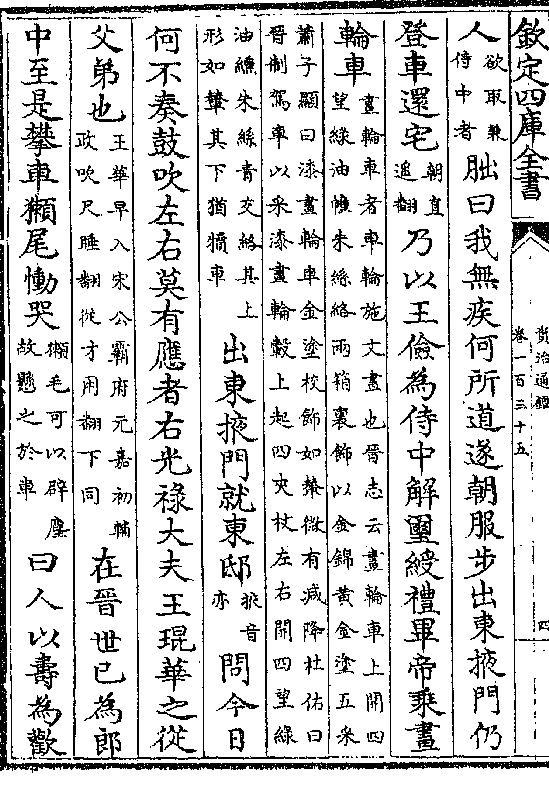 欽定四庫全書
資治通鑑
卷一百三十五
四
人欲取兼侍中者胐曰我無疾何所道遂朝服步出東掖門仍
登車還宅朝直遥翻乃以王儉為侍中解璽綬禮畢帝乗畫
輪車畫輪車者車輪施文畫也晉志云畫輪車上開四望綠油幢朱絲絡兩箱裏飾以金錦黃金塗五采
蕭子顯曰漆畫輪車金塗校飾如輦微有減降杜佑曰晉制駕車以采漆畫輪轂上起四夾杖左右開四望綠
油纁朱絲青交絡其上形如輦其下猶犢車出東掖門就東邸掖音亦問今日
何不奏鼓吹左右莫有應者右光祿大夫王琨華之從
父弟也王華早入宋公霸府元嘉初輔政吹尺睡翻從才用翻下同在晉世已為郎
中至是攀車獺尾慟哭獺毛可以辟塵故懸之於車曰人以壽為歡